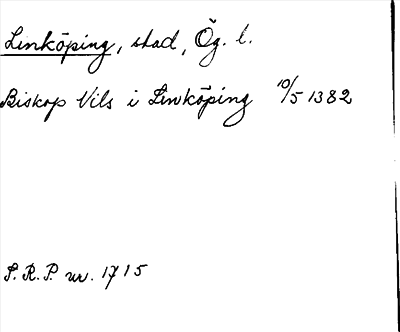 Linköping, stad, Ög. l.
Biskop Nils i Linköping 10/5 1382
S.R.P. nr. 1715